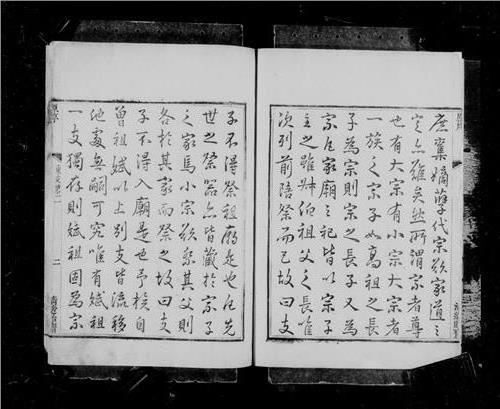 庶棄嫡孽代宗欲家道之
定亦難矣然所謂宗者尊
也有大宗有小宗大宗者
一族之宗子如高祖之長
子為宗則宗之長子又為
宗凡家廟之祀皆以宗子
主之雖叔伯祖父之長唯
次列前陪祭而已故曰支
子不得祭祖廟是也凡先
世之祭器亦皆藏於宗子
之家焉小宗欲祭其父則
各於其家而祭之故曰支
子不得入廟是也予族自
曾祖斌以上別支皆流移
他處無嗣可究唯有斌祖
一支獨存則斌祖固為宗
二